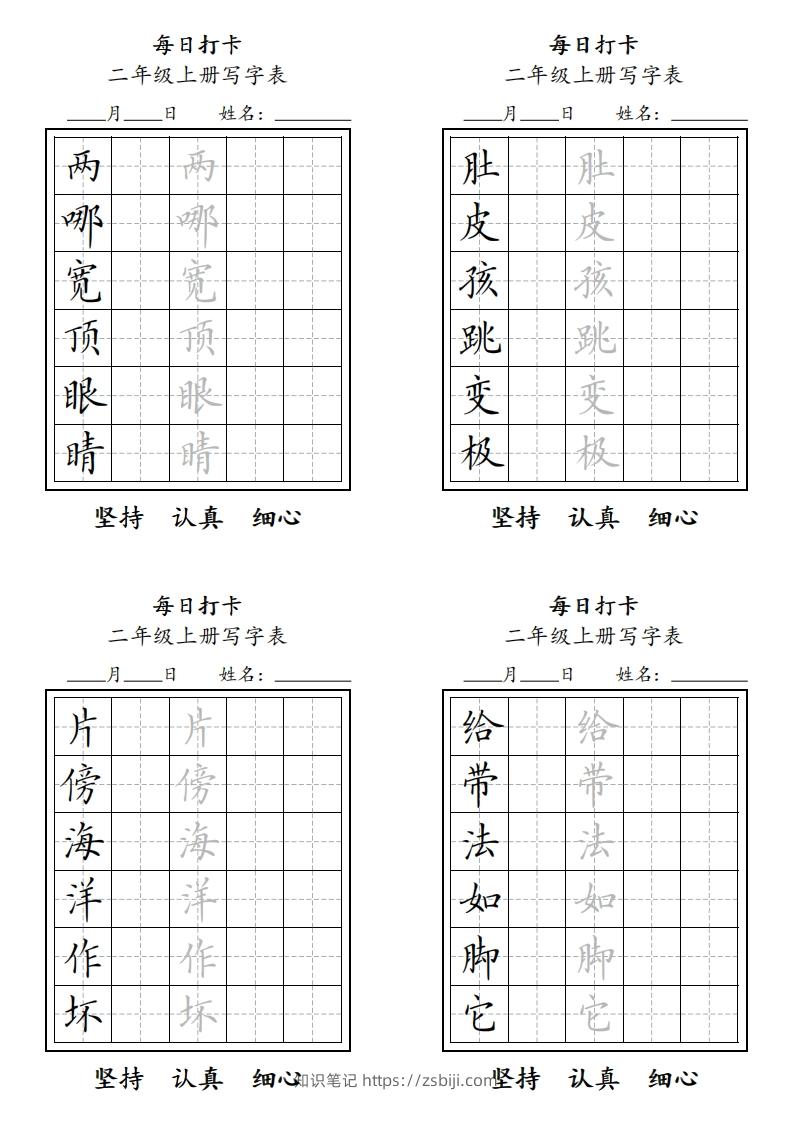 每日打卡
二年级上册写字表
____月____日 姓名：________
两 两
哪 哪
宽 宽
顶 顶
眼 眼
睛 睛
坚持 认真 细心
每日打卡
二年级上册写字表
____月____日 姓名：________
肚 肚
皮 皮
孩 孩
跳 跳
变 变
极 极
坚持 认真 细心
每日打卡
二年级上册写字表
____月____日 姓名：________
片 片
傍 傍
海 海
洋 洋
作 作
坏 坏
坚持 认真 细心
每日打卡
二年级上册写字表
____月____日 姓名：________
给 给
带 带
法 法
如 如
脚 脚
它 它
坚持 认真 细心
知识笔记 https://zsbiji.com